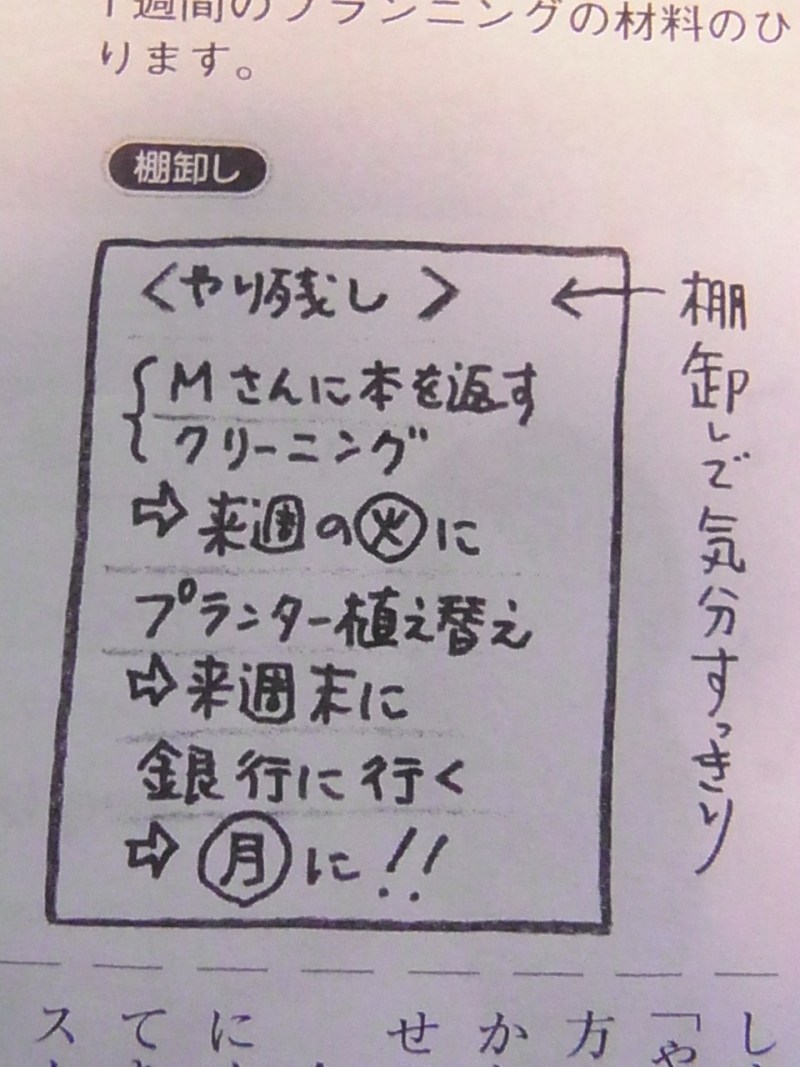 1週間のプランニングの材料のひ
ります。
棚卸し
<やり残し>
Mさんに本を返す
クリーニング
⇨来週の㊋に
プランター植え替え
⇨来週末に
銀行に行く
⇨㊊に!!
棚卸しで気分すっきり
し
「や
方
か
せ
に
て
ス